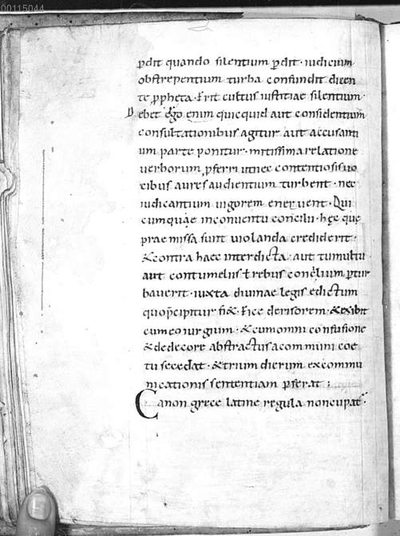 00115044
pdit quando silentium pdit · iudicium
obstrepentium turba confundit dicen
te ppheta · Erit cultus iustitiae silentium ·
Debet ergo enim quicquid aut considentium
consultationibus agitur aut accusanti
um parte ponitur · mitissima relatione
verborum pferri ut nec contentiosis uo
cibus aures audientium turbent · nec
iudicantium uigorem eneruent · Qui
cumquae in conuentu concilii · hęc que
prae missa sunt uiolanda crediderit ·
& contra haec interdicta · aut tumultu
aut contumeliis t rebus concilium ptur
bauerit · iuxta diuinae legis edictum
quo pcipitur · Eice derisorem · & exibit
cum eo iurgium · & cum omni confusione
& dedecore abstractus a communi coe
tu secedat · & trium dierum excommu
nicationis sententiam pferat ;
Canon grece latine regula noncupat ·